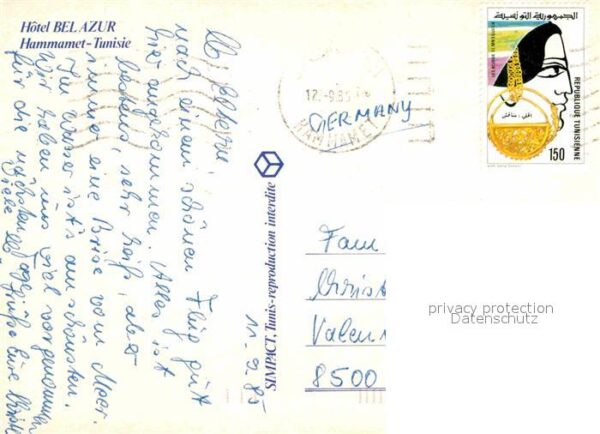 Hôtel BEL AZUR
Hammamet - Tunisie
Ihr Lieben!
nach einem schönen Flug gut
hier angekommen. Alles ist
bestens, sehr heiß, aber
immer eine Brise vom Meer.
Im Wasser ist's am schönsten.
Wir haben uns viel vorgenommen
für die nächsten Tage
viele lb Grüße Eure
11.9.85
SIMPACT, Tunis - reproduction interdite
17 -9.85
HAMMAMET
GERMANY
الجمهورية التونسية
REPUBLIQUE TUNISIENNE
150
Fam
Christ
Valen
8500
privacy protection
Datenschutz